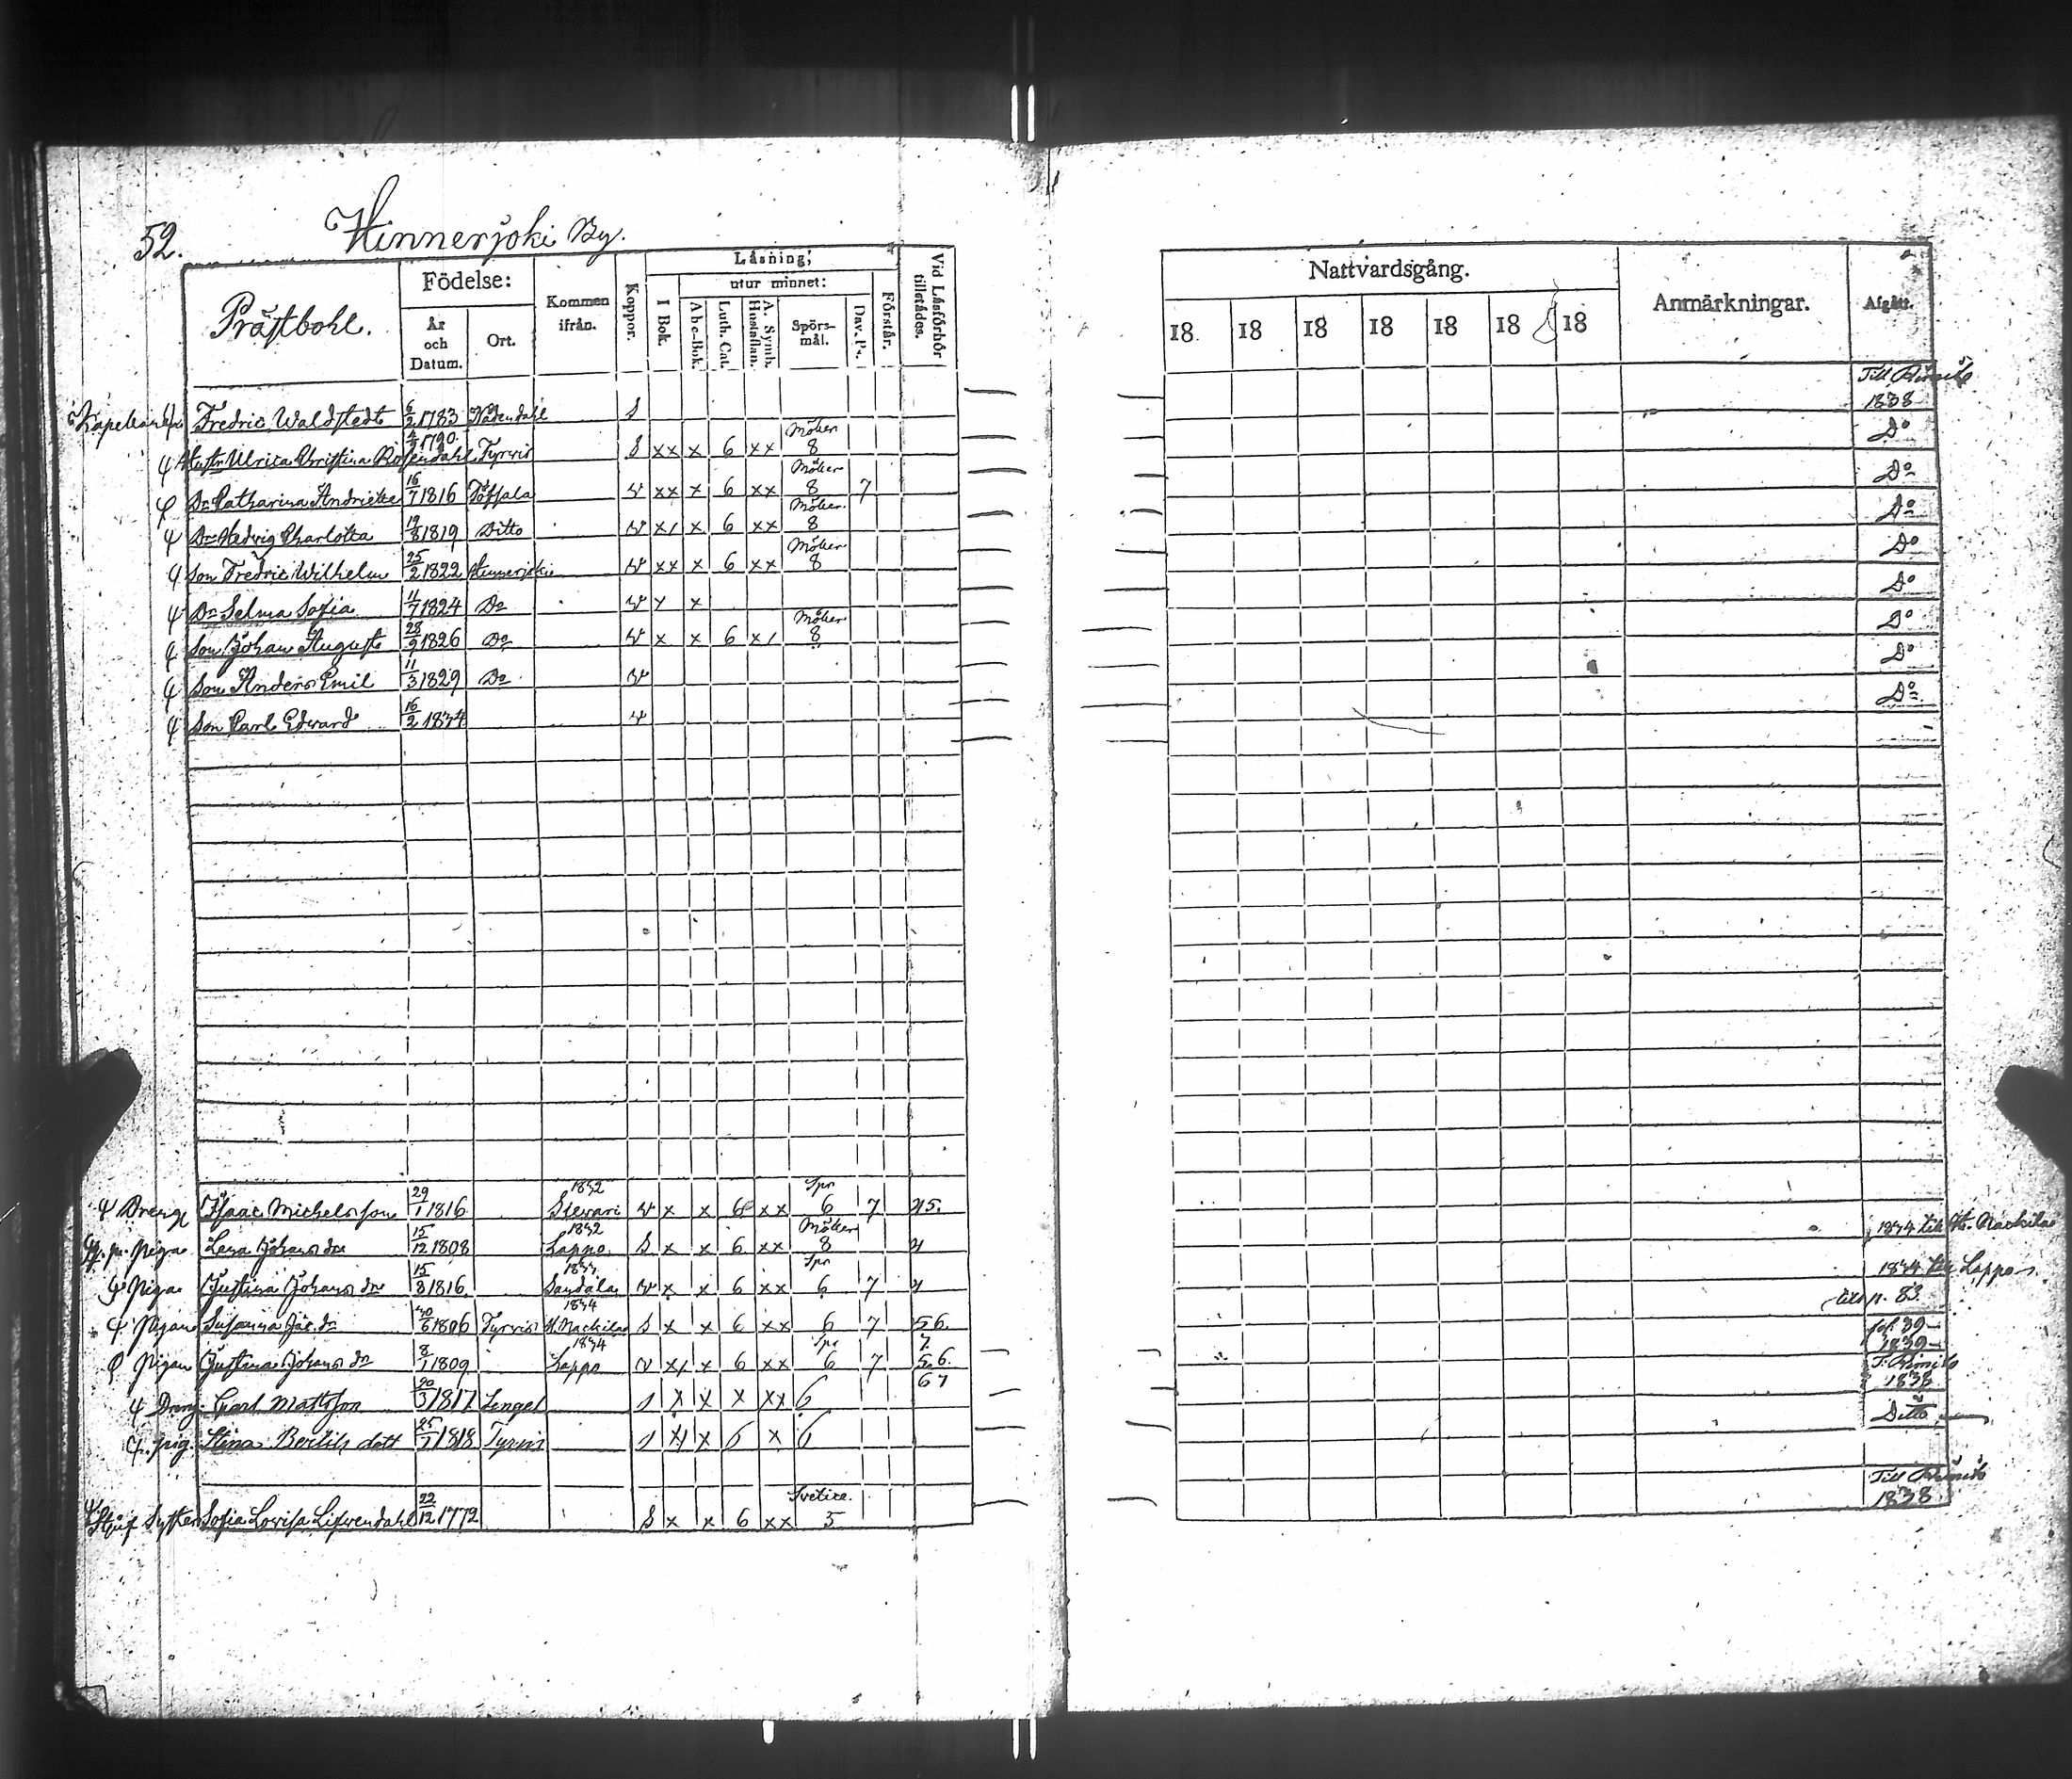 52. Hinnerjoki By.
Prästbohl.
Födelse:
År och Datum.
Ort.
Kommen ifrån.
Koppor.
Läsning;
I Bok.
utur minnet:
Abc-Bok.
Luth. Cat.
A. Symb. Hustaflan.
Spörs-mål.
Dav. Ps.
Förstår.
Vid Läsförhör tillstädes.
Nattvardsgång.
18 18 18 18 18 18 18
Anmärkningar.
Afgått.
Fredric Waldstedt 6/2 1783 Nådendahl S Till 1838
Hustr. Ulrica Christina Rosendahl 1790 Tyrvis S xx x 6 xx Möker 8 Do
Dr Catharina Andriette 16/7 1816 Töfsala v xx x 6 xx Möker 8 7 Do
Dr Hedvig Charlotta 19/8 1819 Ditto v x x 6 xx Möker 8 Do
Son Fredric Wilhelm 25/2 1822 Hinnerjoki v xx x 6 xx Möker 8 Do
Dr Selma Sofia 11/7 1824 Do v x x Do
Son Johan August 28/9 1826 Do v x x 6 x Möker 8 Do
Son Anders Emil 11/3 1829 Do v Do
Son Carl Edvard 16/2 1834 v Do
Dreng Isaac Michelsson 29/1 1816 1832 v x x 6 xx Spr 6 7 45.
Piga Lena Johans dr 15/12 1808 1832 Lappo S x x 6 xx Möker 8 4 1834 till H. Nackila
Piga Justina Johans dr 15/8 1816 v x x 6 xx Spr 6 7 4 1834 till Lappo
Pigan Susanna Jac. dr 1806 Tyrvis 1834 H. Nackila S x x 6 xx 6 7 56. till p. 83
Pigan Justina Johans dr 8/1 1809 1834 Lappo v x x 6 xx Spr 6 7 7. 5.6. fol. 39 1839
Dreng Carl Mattsson 20/3 1817 Lengel x x x xx 6 67 1838
pig. Stina Bertils dott 25/1 1818 Tyrvis x x 6 x 6 Ditto
Sofia Lovisa 22/12 1772 S x x 6 xx Svetice. 5 Till 1838